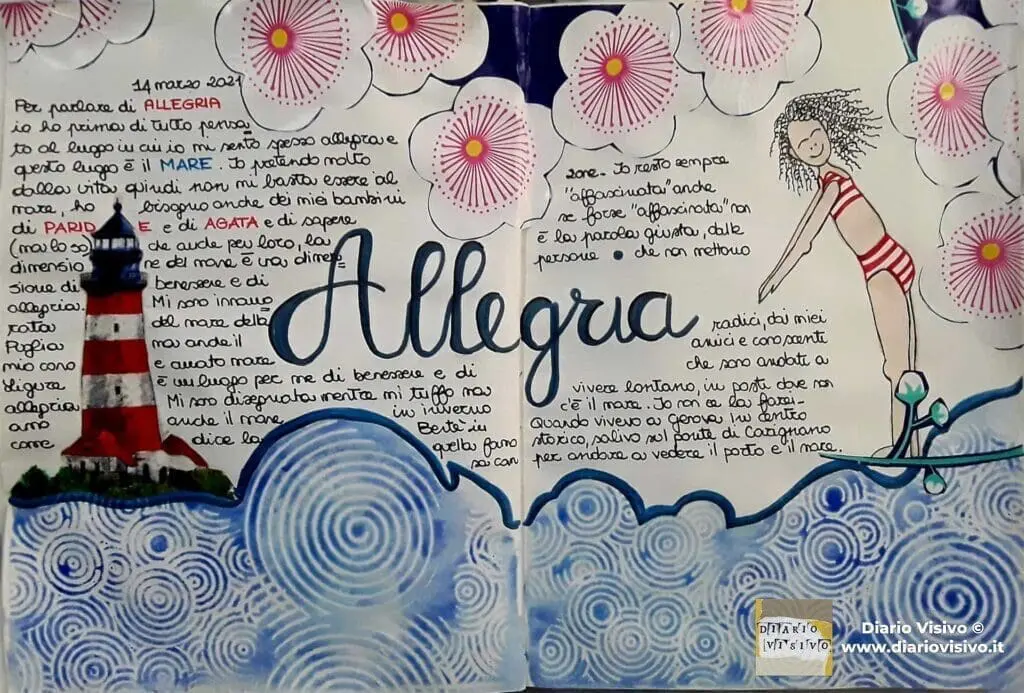 14 marzo 2021
Per parlare di ALLEGRIA
io ho prima di tutto pensa
to al luogo in cui io mi sento spesso allegra e
questo luogo è il MARE. Io pretendo molto
dalla vita quindi non mi basta essere al
mare, ho bisogno anche dei miei bambini
di PARID E e di AGATA e di sapere
(ma lo so) che anche per loro, la
dimensio ne del mare è una dimen
sione di benessere e di
allegria. Mi sono innamo
rata del mare della
Puglia ma anche il
mio cono e amato mare
ligure è un luogo per me di benessere e di
allegria Mi sono disegnata mentre mi tuffo ma
amo anche il mare in inverno
come dice la Berté in
quella famo
sa can
Allegria
zone. Io resto sempre
"affascinata" anche
se forse "affascinata" non
è la parola giusta, dalle
persone che non mettono
radici, dai miei
amici e conoscenti
che sono andati a
vivere lontano, in posti dove non
c'è il mare. Io non ce la farei-
Quando vivevo a Genova in centro
storico, salivo sul ponte di Carignano
per andare a vedere il porto e il mare.
DIARIO
VISIVO
Diario Visivo ©
www.diariovisivo.it